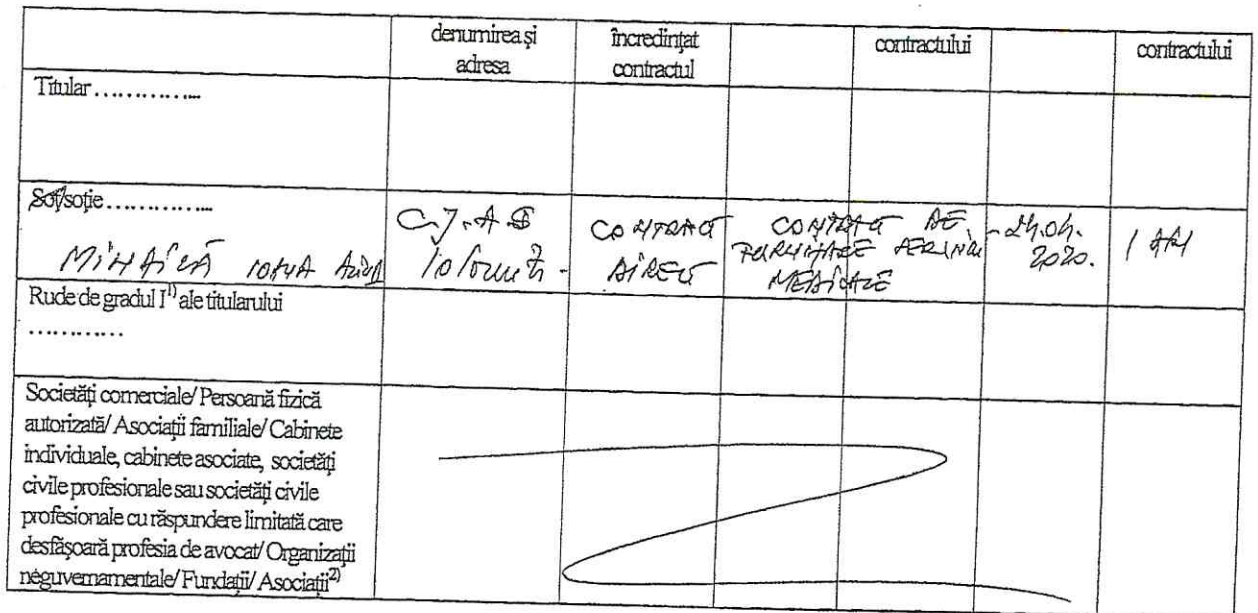 denumirea și încredințat contractului contractului
adresa contractul
Titular …………...
Soț/soție …………...
C.J.A.S CONTRACT CONTRACT DE -24.04. 1 AN
MIHĂILĂ IOANA Ialomița - DIRECT FURNIZARE SERVICII 2020.
MEDICALE
Rude de gradul I¹⁾ ale titularului
…………
Societăți comerciale/ Persoană fizică
autorizată/ Asociații familiale/ Cabinete
individuale, cabinete asociate, societăți
civile profesionale sau societăți civile
profesionale cu răspundere limitată care
desfășoară profesia de avocat/ Organizații
neguvernamentale/ Fundații/ Asociații²⁾